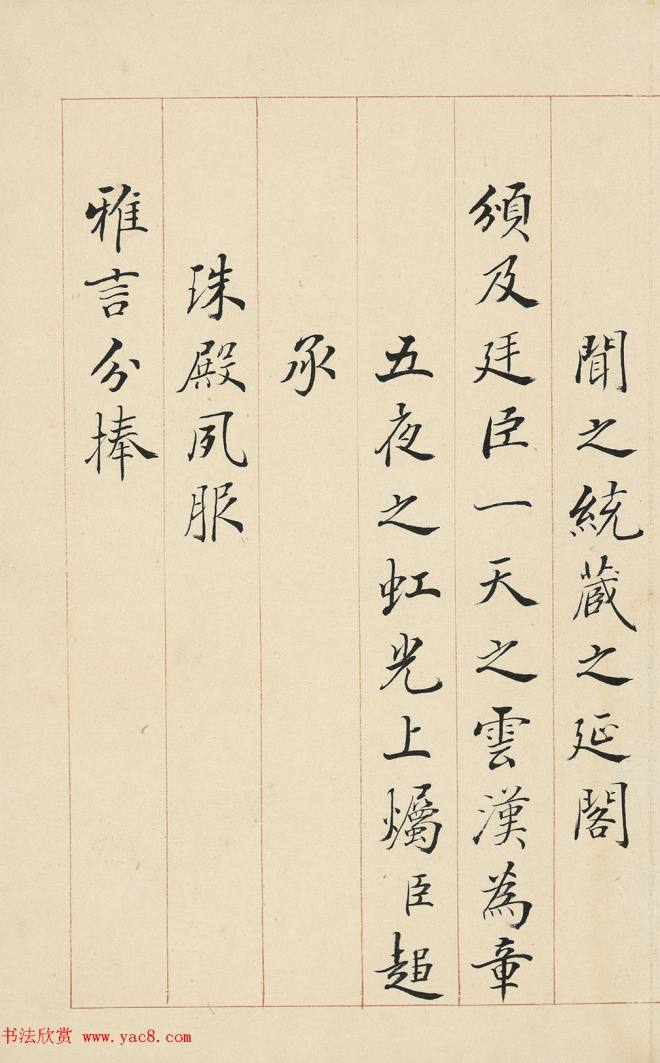 聞之統蔵之延閣
頒及廷臣一天之雲漢為章
五夜之虹光上爥臣超
承
珠殿夙服
雅言分捧
书法欣赏 www.yac8.com